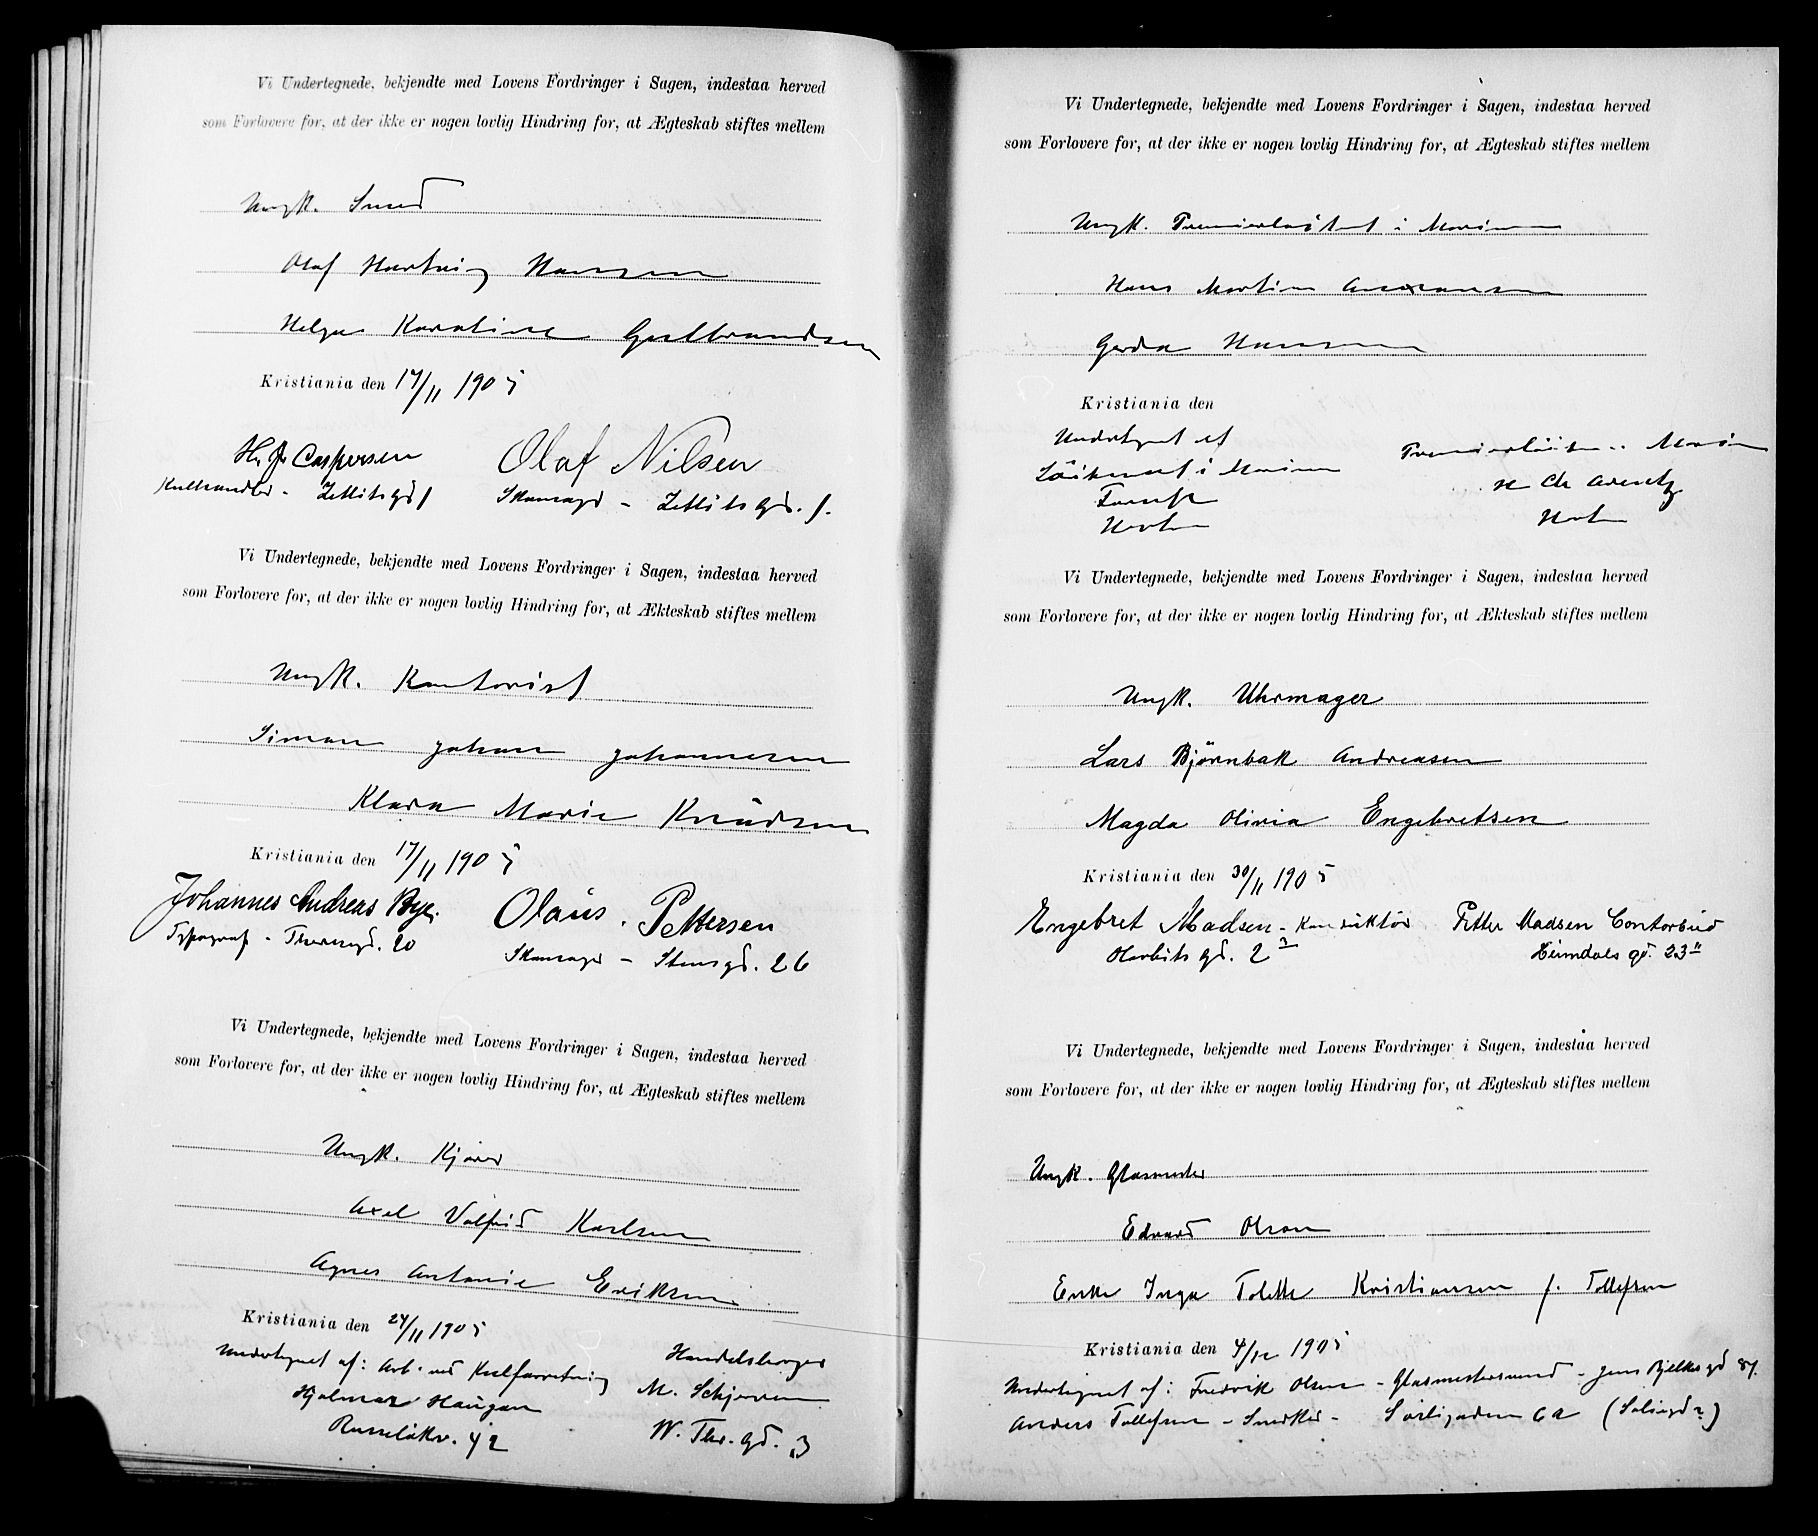 Vi Undertegnede, bekjendte med Lovens Fordringer i Sagen, indestaa herved
som Forlovere for, at der ikke er nogen lovlig Hindring for, at Ægteskab stiftes mellem
Ungk. Smed
Olaf Hartvig Hansen
Helga Karoline Gulbrandsen
Kristiania den 17/11 1905
H. J. Caspersen
Olaf Nilsen
Kulhandler - Zetlitsgd 1
Skomagr - Zetlitsgd. 1.
Vi Undertegnede, bekjendte med Lovens Fordringer i Sagen, indestaa herved
som Forlovere for, at der ikke er nogen lovlig Hindring for, at Ækteskab stiftes mellem
Ungk. Kontorist
Simon Johan Johannesen
Klara Marie Knudsen
Kristiania den 17/11 1905
Johannes Andreas Bye.
Olaus. Pettersen
Typograf - Theresgd. 20
Skomager - Stensgd. 26
Vi Undertegnede, bekjendte med Lovens Fordringer i Sagen, indestaa herved
som Forlovere for, at der ikke er nogen lovlig Hindring for, at Ægteskab stiftes mellem
Ungk. Kjører
Axel Valfrid Karlsen
Agnes Antonie Eriksen
Kristiania den 24/11 1905
Undertegnet af: Arb. ved Kulforretning
Hjalmar Haugan
42
Handelsborger
M. Schjerven
W. Thr. gd. 3
Vi Undertegnede, bekjendte med Lovens Fordringer i Sagen, indestaa herved
som Forlovere for, at der ikke er nogen lovlig Hindring for, at Ægteskab stiftes mellem
Ungk. Premierløitnant i Marinen
Hans Martin
Gerda Hansen
Kristiania den
Undertegnet af
Løitnant i Marinen
Horten
Premierløitn. i Marinen
H Ch Arentz
Horten
Vi Undertegnede, bekjendte med Lovens Fordringer i Sagen, indestaa herved
som Forlovere for, at der ikke er nogen lovlig Hindring for, at Ækteskab stiftes mellem
Ungk. Uhrmager
Lars Bjørnbak Andreasen
Magda Olivia Engebretsen
Kristiania den 30/11 1905
Engebret Madsen - Konduktør
gd. 2
Petter Madsen Contorbud
Heimdals gd. 23 II
Vi Undertegnede, bekjendte med Lovens Fordringer i Sagen, indestaa herved
som Forlovere for, at der ikke er nogen lovlig Hindring for, at Ægteskab stiftes mellem
Ungk. Glasmester
Edvard Olsen
Enke Inga Tolette Kristiansen f. Tollefsen
Kristiania den 4/12 1905
Undertegnet af: Fredrik Olsen - Glasmestersvend - Jens Bjelkes gd
Anders Tollefsen - Snedker - Sørligaden 62